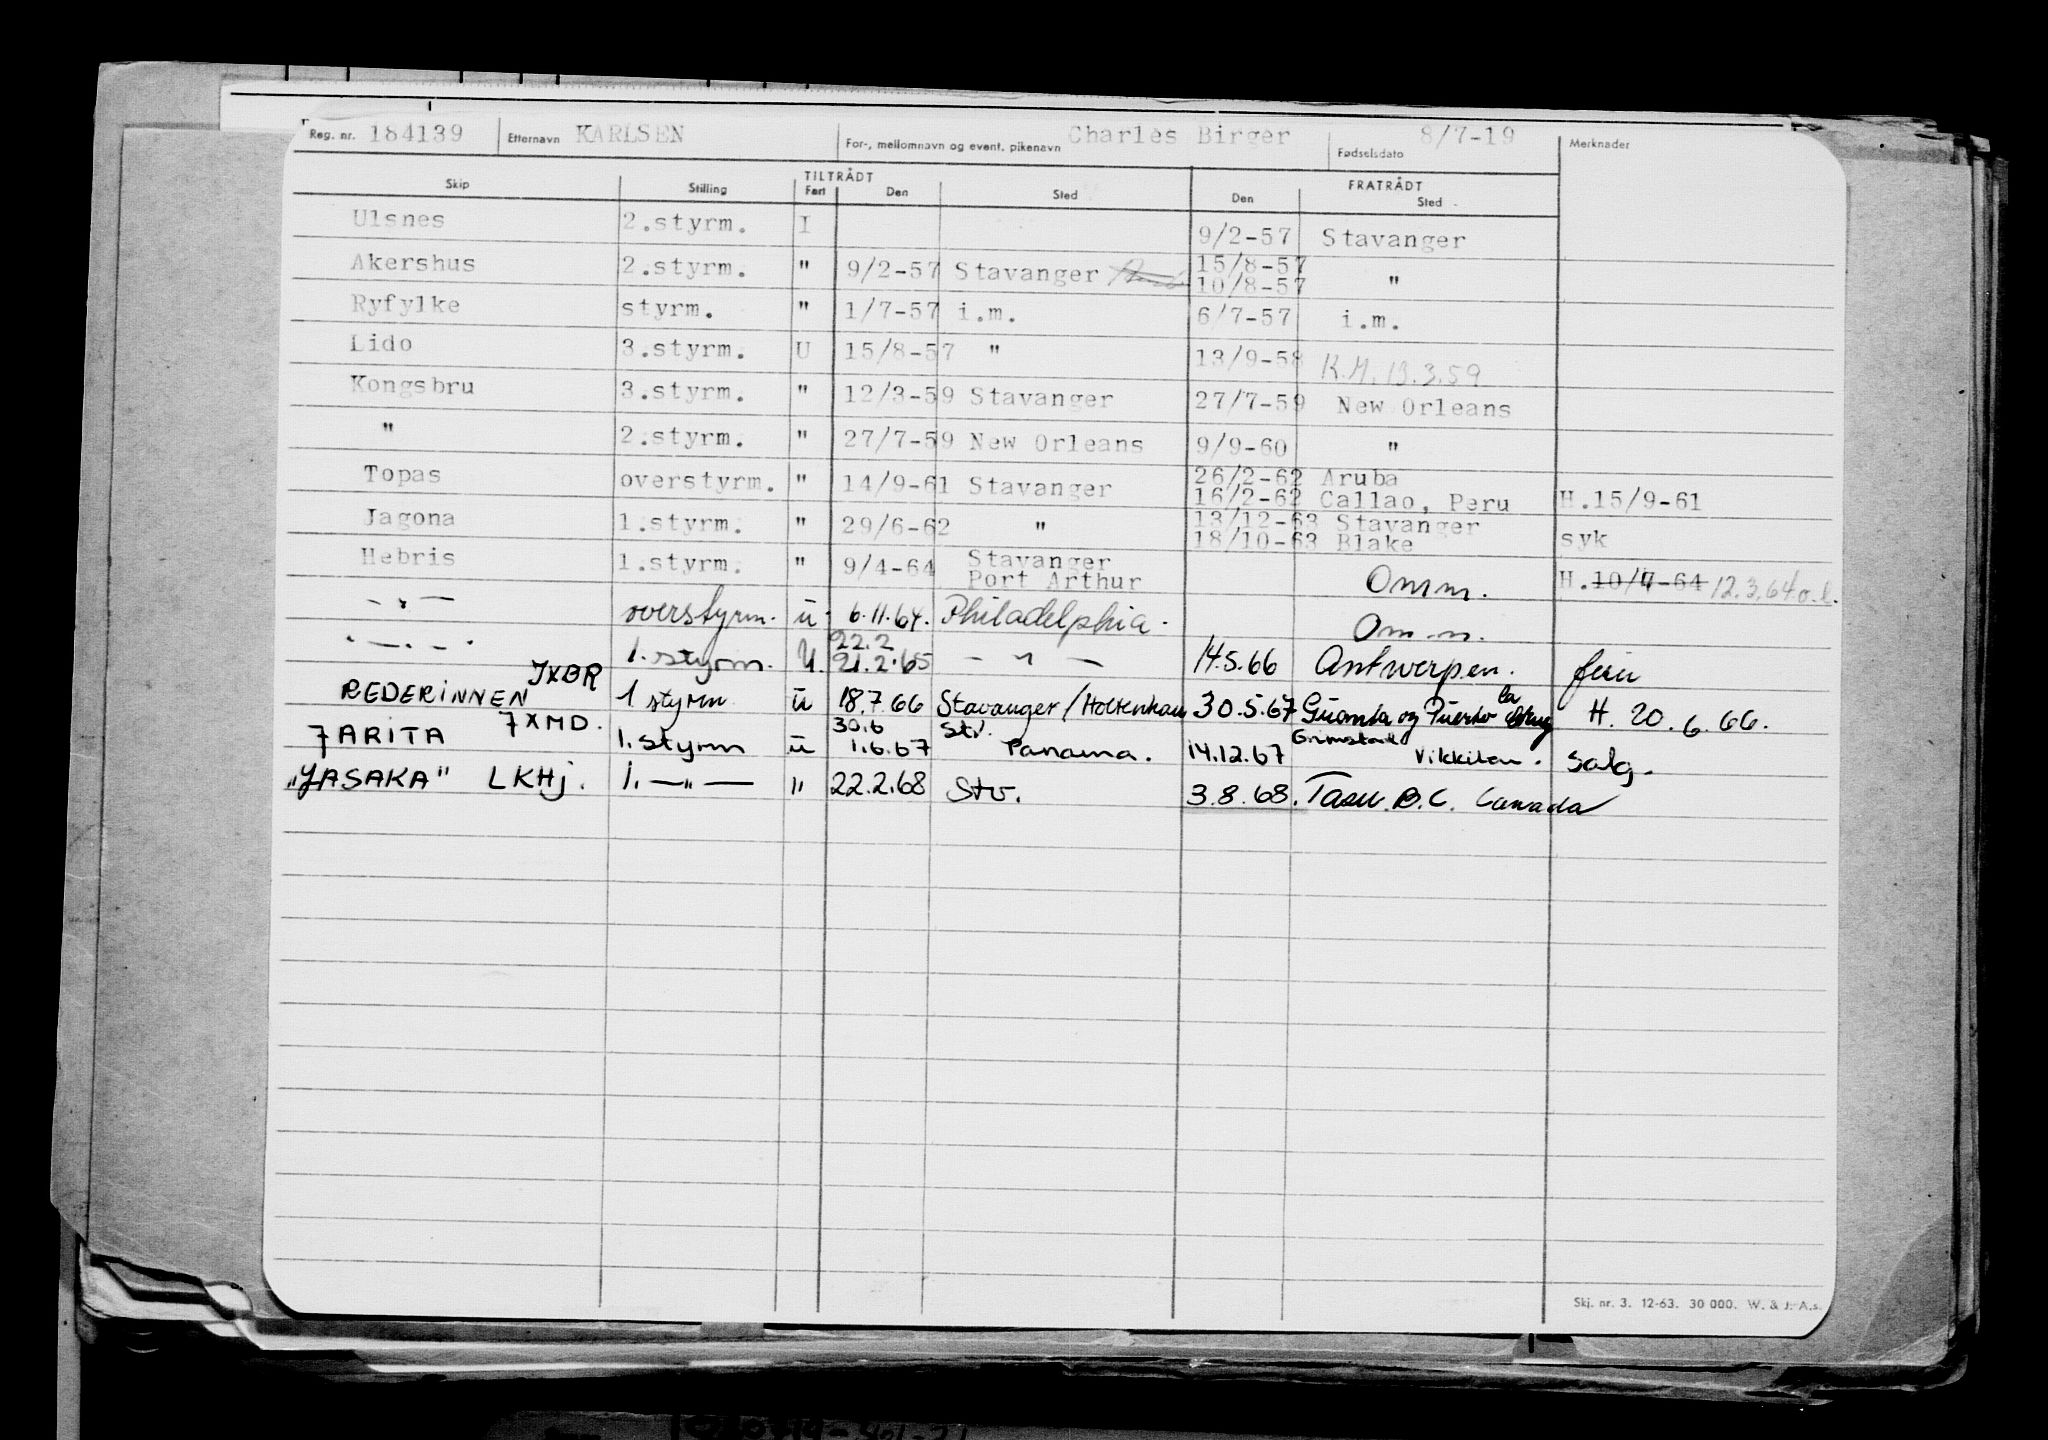 Reg. nr. 184139 Etternavn KARLSEN For-, mellomnavn og event. pikenavn Charles Birger Fødselsdato 8/7-19 Merknader
TILTRÅDT FRATRÅDT
Skip Stilling Fart Den Sted Den Sted
Ulsnes 2.styrm. I 9/2-57 Stavanger
Akershus 2.styrm. " 9/2-57 Stavanger 15/8-57
10/8-57 "
Ryfylke styrm. " 1/7-57 i.m. 6/7-57 i.m.
Lido 3.styrm. U 15/8-57 " 13/9-58 R.M. 13.3.59
Kongsbru 3.styrm. " 12/3-59 Stavanger 27/7-59 New Orleans
" 2.styrm. " 27/7-59 New Orleans 9/9-60 "
Topas overstyrm. " 14/9-61 Stavanger 26/2-62 Aruba
16/2-62 Callao, Peru H.15/9-61
Jagona 1.styrm. " 29/6-62 " 13/12-63 Stavanger
18/10-63 Blake syk
Hebris 1.styrm. " 9/4-64 Stavanger
Port Arthur Omm. H.10/4-64 12.3.64 o.l.
- " - overstyrm. u 6.11.64. Philadelphia. Om.m.
- " - 1. styrm. U. 22.2
21.2.65 - " - 14.5.66 Antwerpen. ferie
REDERINNEN JXBR 1 styrm u 18.7.66 Stavanger/Holtenhau 30.5.67 Guanta og Puerto la Cruz H. 20.6.66.
JARITA JXMD. 1. styrm u 30.6 Stv.
1.6.67 Panama. 14.12.67 Grimstad Vikkilen. salg.
"JASAKA" LKHj. 1. - " - " 22.2.68 Stv. 3.8.68. Tasu. B.C. Canada
Skj. nr. 3. 12-63. 30 000. W. & J. A.s.